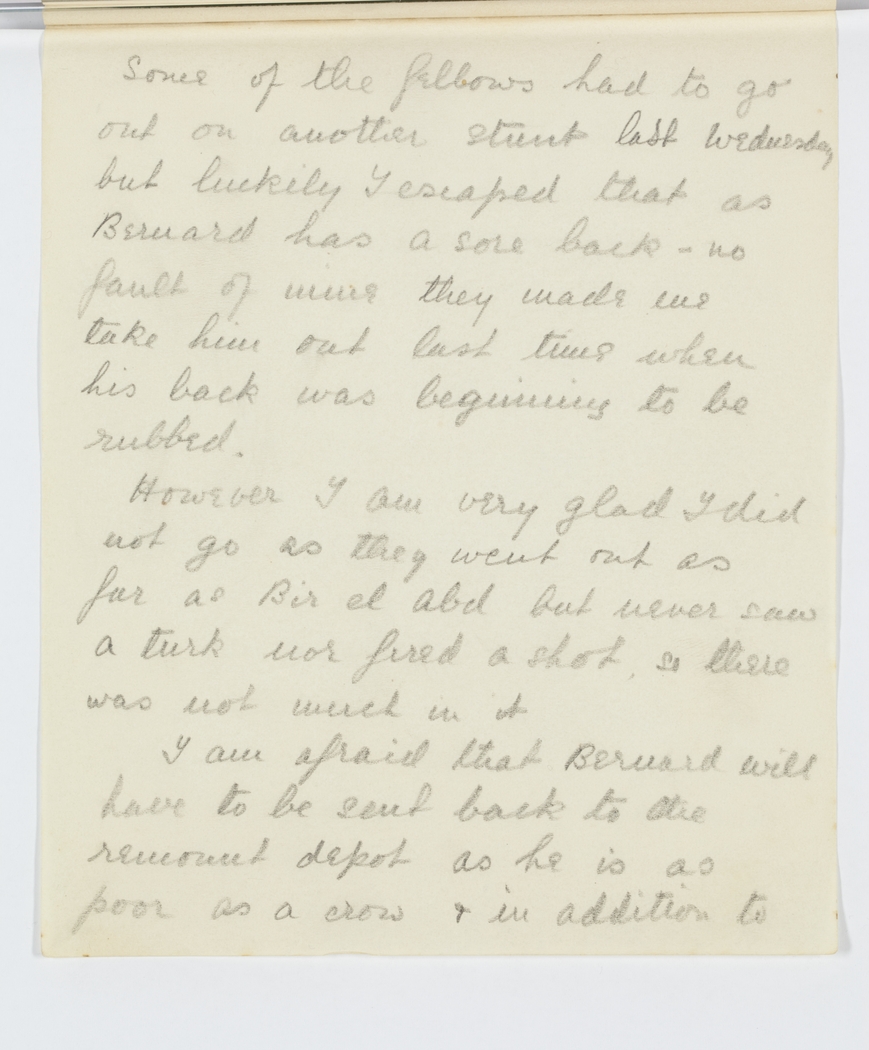 Some of the fellows had to go
out on another stunt last Wednesday
but luckily I escaped that as
Bernard has a sore back - no
fault of mine they made me
take him out last time when
his back was beginning to be
rubbed.
However I am very glad I did
not go as they went out as
far as Bir el abd but never saw
a turk nor fired a shot, so there
was not much in it
I am afraid that Bernard will
have to be sent back to the
remount depot as he is as
poor as a crow & in addition to